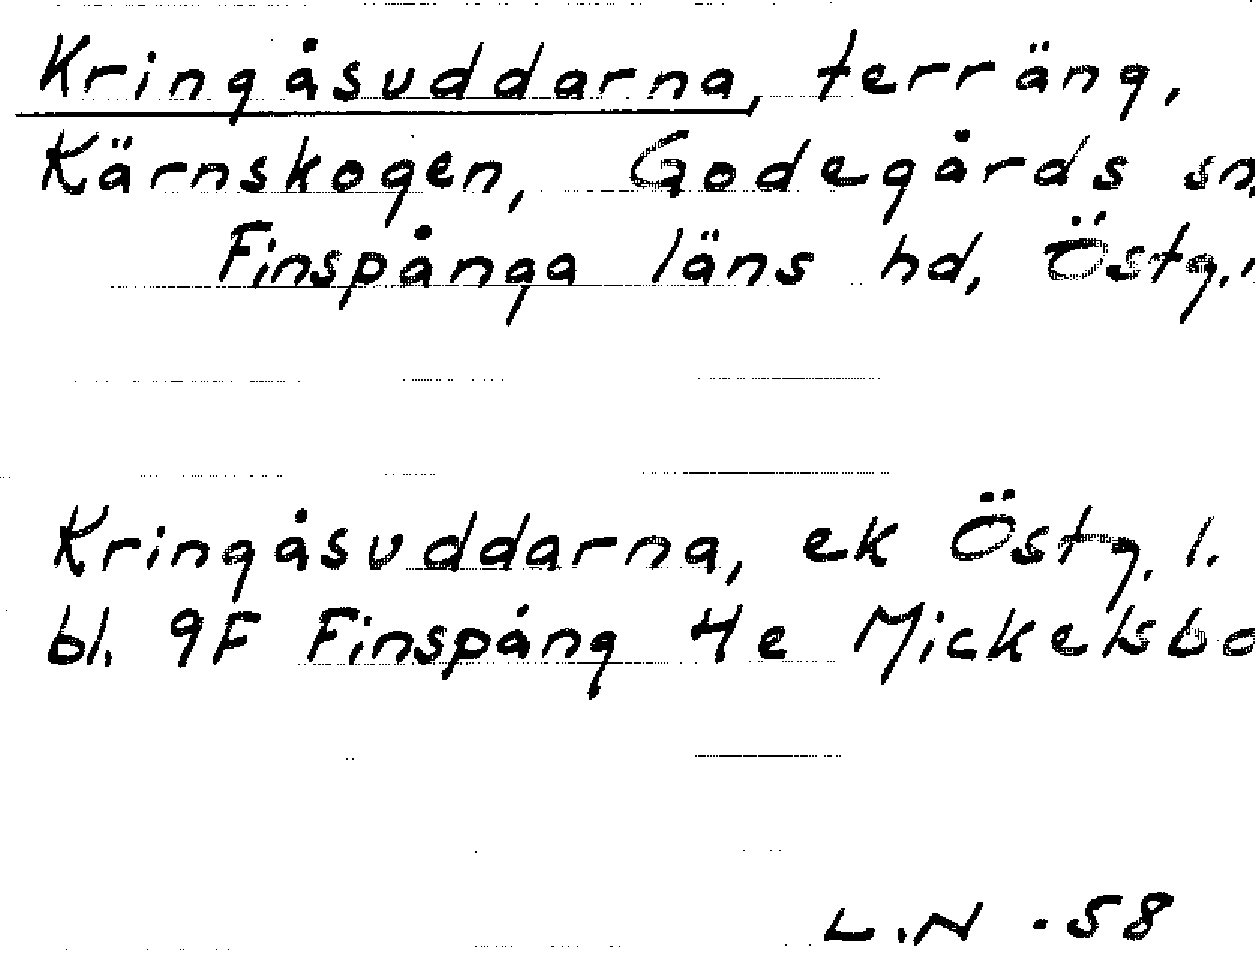 Kringåsuddarna, terräng,
Kärnskogen, Godegårds sn,
Finspånga läns hd, Östg.
Kringåsuddarna, ek Östg. l.
bl. 9F Finspång 4e Mickelsbo
L.N -58